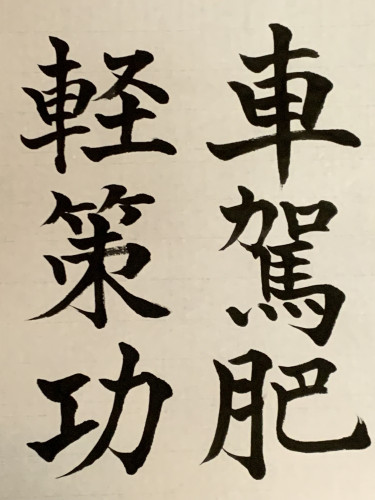 車駕肥
軽策功